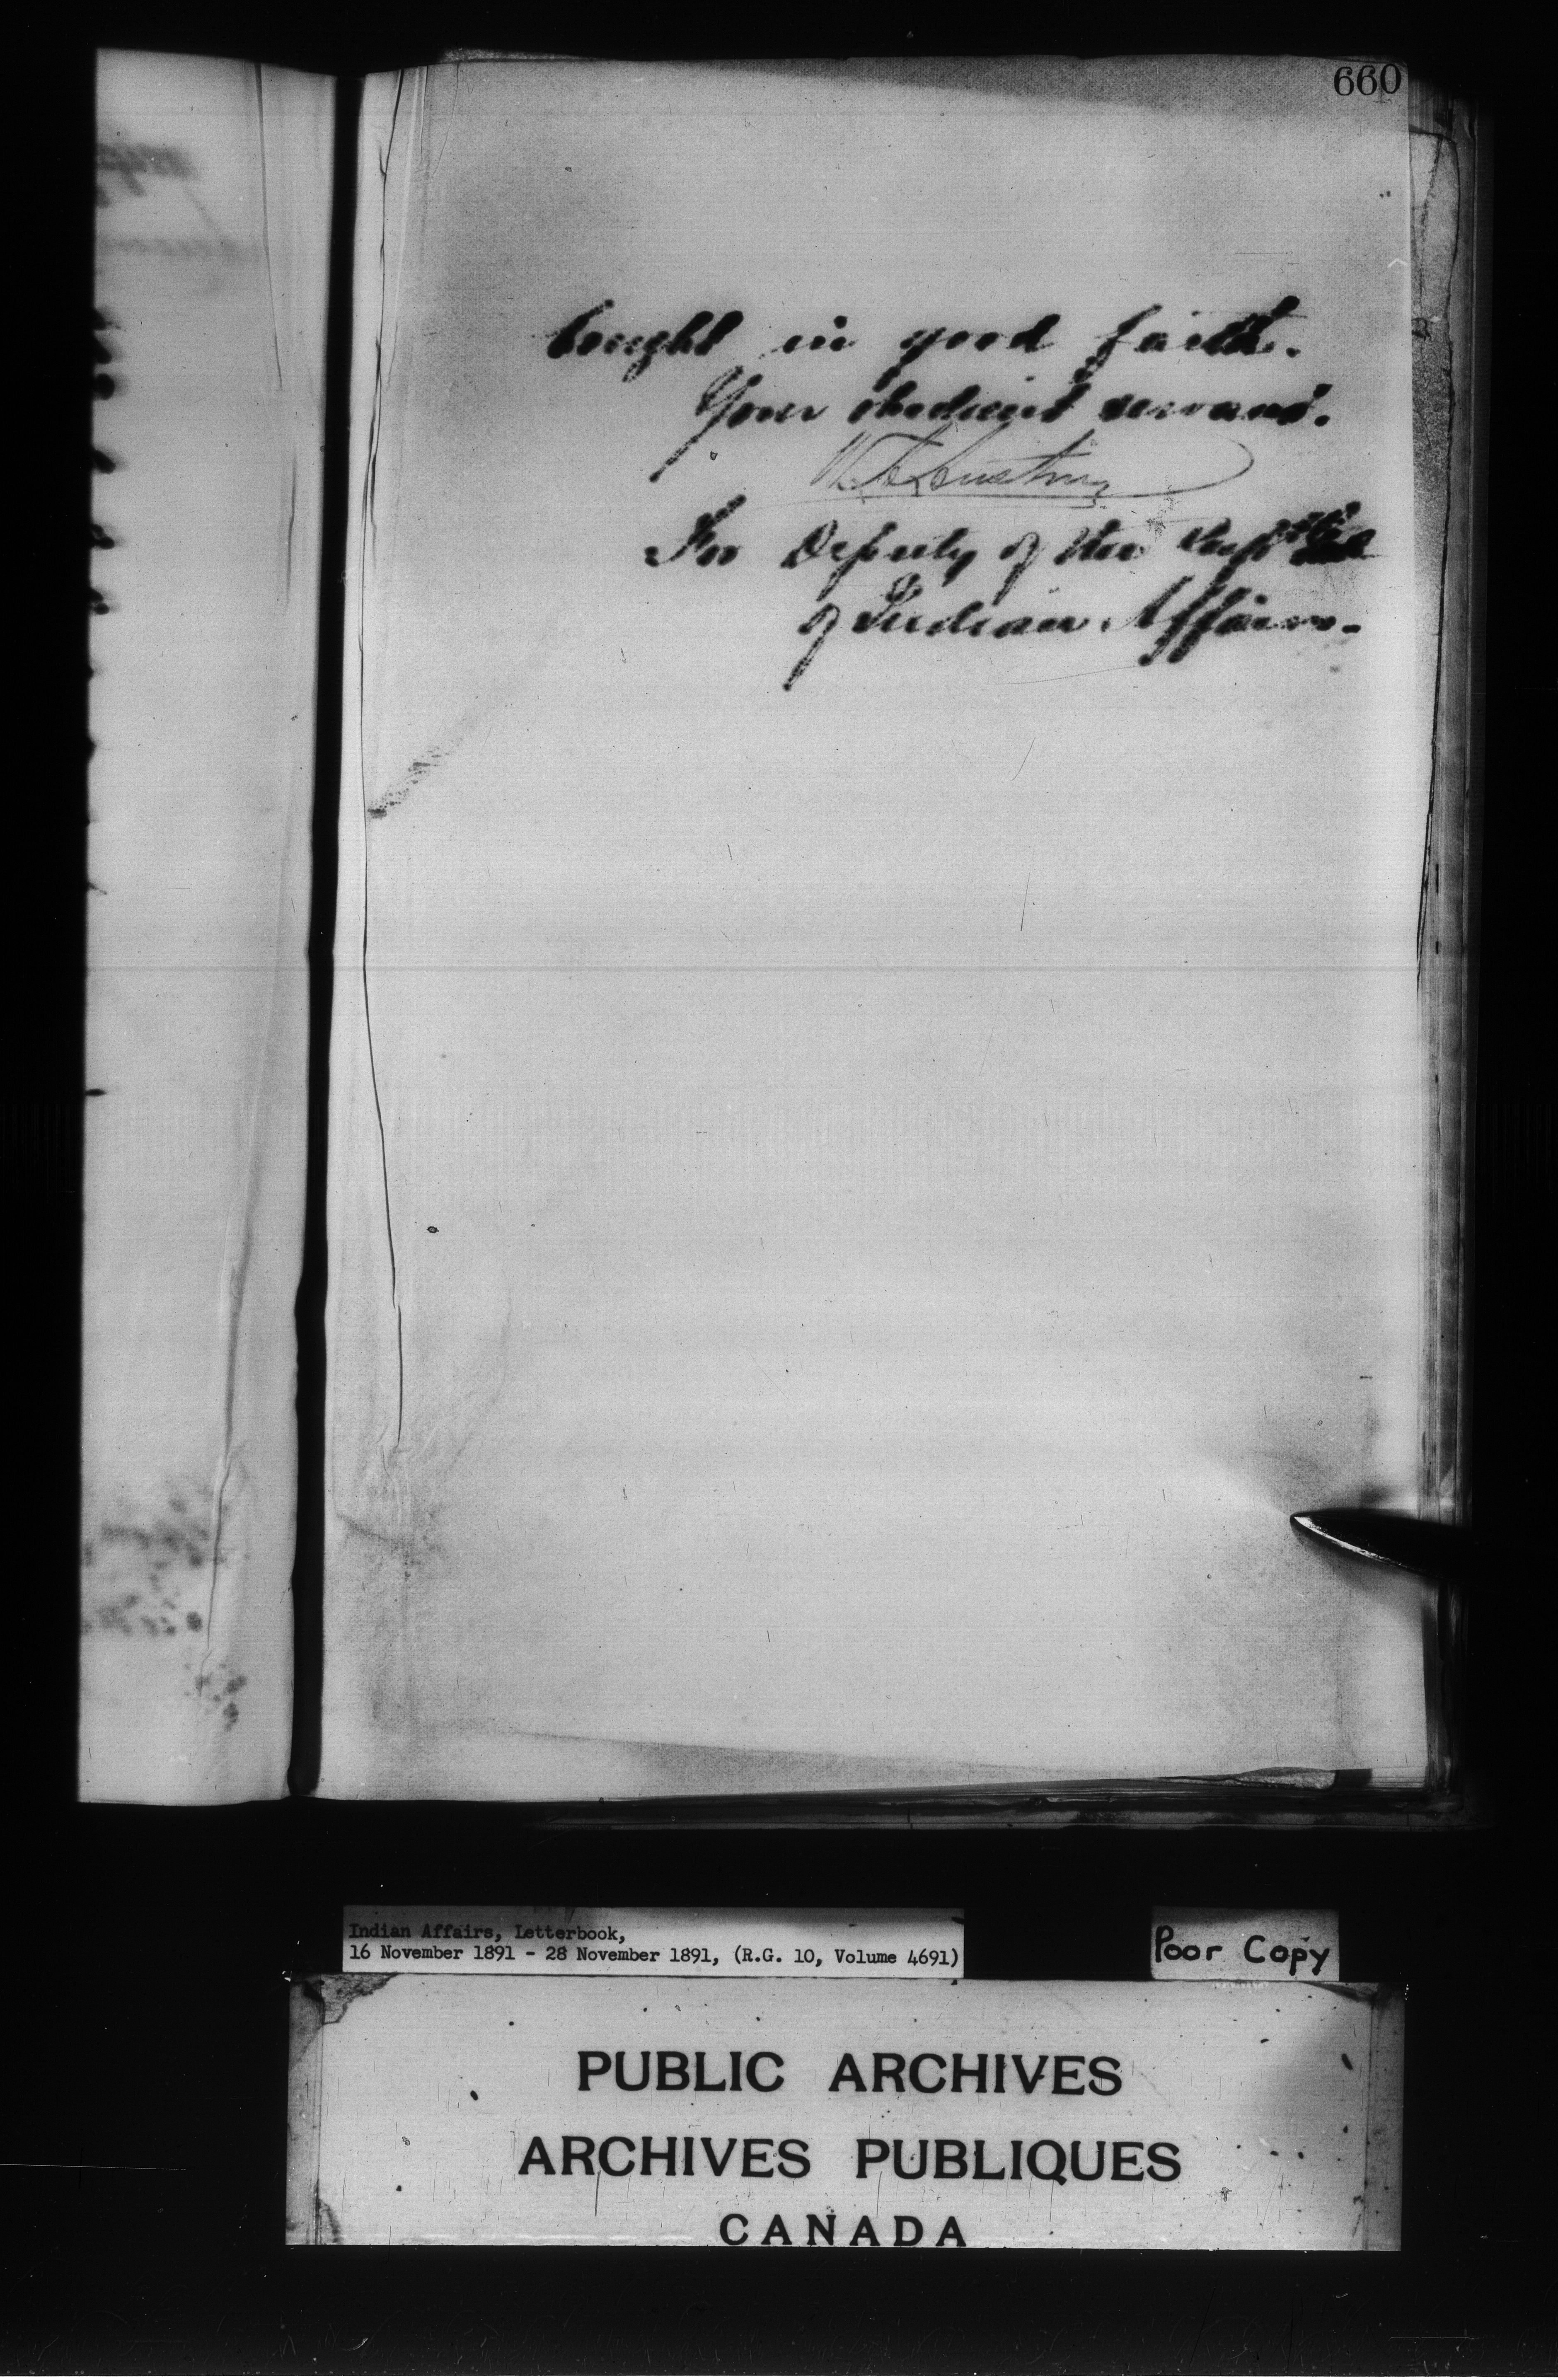 660
bought in good faith.
Your obedient servant.
For Deputy of the Supt
of Indian Affairs.
Indian Affairs, Letterbook,
16 November 1891 - 28 November 1891, (R.G. 10, Volume 4691)
Poor Copy
PUBLIC ARCHIVES
ARCHIVES PUBLIQUES
CANADA